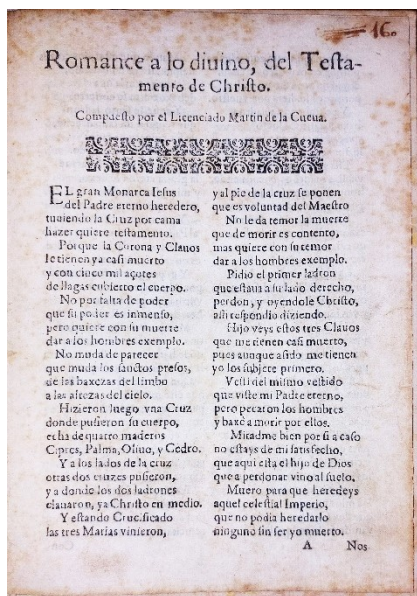 16.
Romance a lo diuino, del Testa-
mento de Christo.
Compuesto por el Licenciado Martin de la Cueua.
EL gran Monarca Iesus
del Padre eterno heredero,
tuuiendo la Cruz por cama
hazer quiere testamento.
Porque la Corona y Clauos
le tienen ya casi muerto
y con cinco mil açotes
de llagas cubierto el cuerpo.
No por falta de poder
que su poder es inmenso,
pero quiere con su muerte
dar a los hombres exemplo.
No muda de parecer
que muda los sanctos presos,
de las baxezas del limbo
a las altezas del cielo.
Hizieron luego vna Cruz
donde pusieron su cuerpo,
echa de quatro maderos
Cipres, Palma, Oliuo, y Cedro.
Y a los lados de la cruz
otras dos cruzes pusieron,
y a donde los dos ladrones
clauaron, ya Christo en medio.
Y estando Crucificado
las tres Marias vinieron,
y al pie de la cruz se ponen
que es voluntad del Maestro
No le da temor la muerte
que de morir es contento,
mas quiere con su temor
dar a los hombres exemplo.
Pidio el primer ladron
que estaua a su lado derecho,
perdon, y oyendole Christo,
assi respondio diziendo.
Hijo veys estos tres Clauos
que me tienen casi muerto,
pues aunque asido me tienen
yo los subjete primero.
Vesti del mismo vestido
que viste mi Padre eterno,
pero pecaron los hombres
y baxè a morir por ellos.
Miradme bien por si a caso
no estays de mi satisfecho,
que aqui esta el hijo de Dios
que a perdonar vino al suelo.
Muero para que heredeys
aquel celestial Imperio,
que no podia heredarlo
ninguno sin ser yo muerto.
A Nos